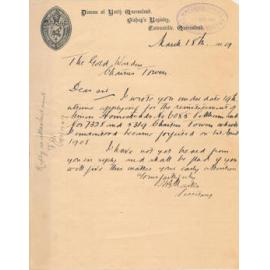 Diocese of North Queensland.
Bishop's Registry,
Townsville, Queensland,
March 18th 1909
The Gold Warden
Charters Towers
Dear Sir
I wrote you under date 19th
ultimo applying for the reinstatement of
Miners Homesteads No 6085
for 7338 and Charters Towers which
I understand became forfeited on 1st
1908
I have not yet heard from
you in reply and shall be glad if you
will give this matter your early attention
Yours faithfully
Secretary